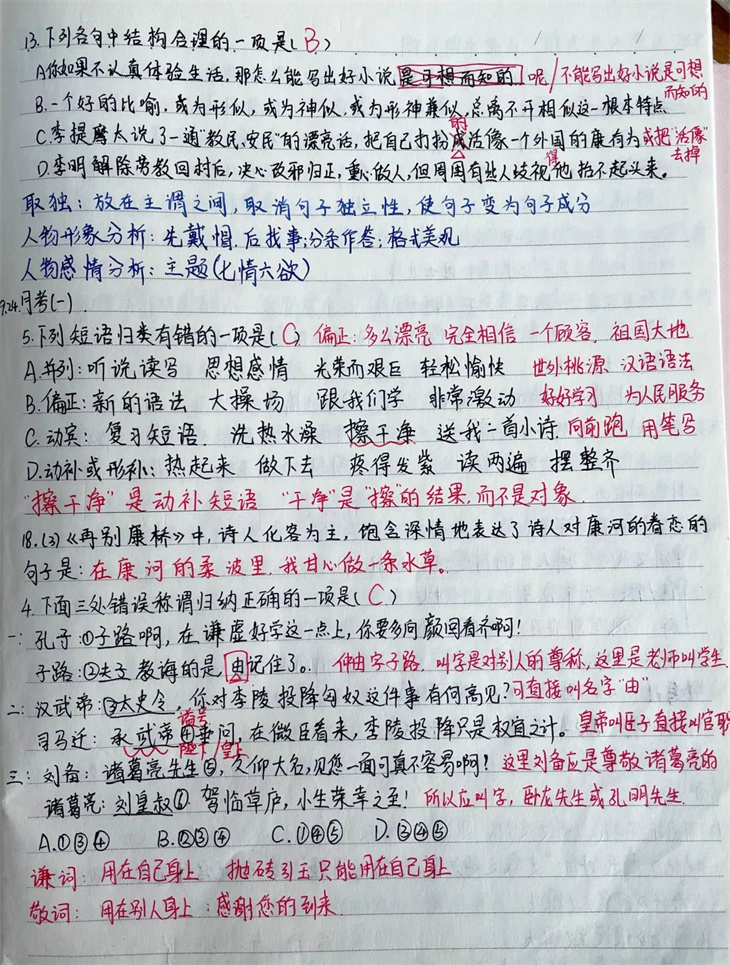 13.下列各句中结构合理的一项是(B)
A.你如果不认真体验生活,那怎么能写出好小说是可想而知的。呢/不能写出好小说是可想而知的
B.一个好的比喻,或为形似,或为神似,或为形神兼似,总离不开相似这一根本特点
C.李提摩太说了一通“教民,安民”的漂亮话,把自己打扮成活像一个外国的康有为 的 或把“活像”去掉
D.李明解除劳教回村后,决心改邪归正,重心做人,但周围有些人歧视他抬不起头来。 得
取独:放在主谓之间,取消句子独立性,使句子变为句子成分
人物形象分析:先戴帽,后找事;分条作答;格式美观
人物感情分析:主题(七情六欲)
9.24.月考(一)
5.下列短语归类有错的一项是(C) 偏正:多么漂亮 完全相信 一个顾客. 祖国大地
A.并列:听说读写 思想感情 光荣而艰巨 轻松愉快 世外桃源 汉语语法
B.偏正:新的语法 大操场 跟我们学 非常激动 好好学习 为人民服务
C.动宾:复习短语. 洗热水澡 擦干净 送我一首小诗. 向前跑 用笔写
D.动补或形补:热起来 做下去 疼得发紫 读两遍 摆整齐
“擦干净”是动补短语 “干净”是“擦”的结果,而不是对象.
18.(3)《再别康桥》中,诗人化客为主,饱含深情地表达了诗人对康河的眷恋的
句子是:在康河的柔波里,我甘心做一条水草。
4.下面三处错误称谓归纳正确的一项是(C)
一:孔子:①子路啊,在谦虚好学这一点上,你要多向颜回看齐啊!
子路:②夫子教诲的是,由记住了。 仲由字子路.叫字是对别人的尊称,这里是老师叫学生.
二:汉武帝:③太史令,你对李陵投降匈奴这件事有何高见?可直接叫名字“由”
司马迁:承武帝④垂问,在微臣看来,李陵投降只是权宜之计。 谥号 陛下/皇上 皇帝叫臣子直接叫官职
三:刘备:诸葛亮先生⑤,久仰大名,见您一面可真不容易啊! 这里刘备应是尊敬诸葛亮的
诸葛亮:刘皇叔⑥驾临草庐,小生荣幸之至! 所以应叫字,卧龙先生或孔明先生.
A.①③④ B.②③④ C.①④⑤ D.③④⑤
谦词:用在自己身上 抛砖引玉只能用在自己身上
敬词:用在别人身上:感谢您的到来.